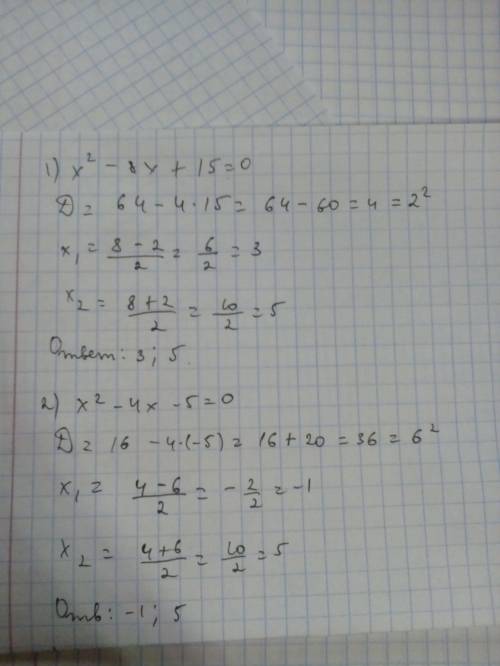 1) x² - 8x + 15 = 0
D = 64 - 4·15 = 64 - 60 = 4 = 2²
x₁ = (8 - 2)/2 = 6/2 = 3
x₂ = (8 + 2)/2 = 10/2 = 5
Ответ: 3; 5
2) x² - 4x - 5 = 0
D = 16 - 4·(-5) = 16 + 20 = 36 = 6²
x₁ = (4 - 6)/2 = -2/2 = -1
x₂ = (4 + 6)/2 = 10/2 = 5
Отв: -1; 5